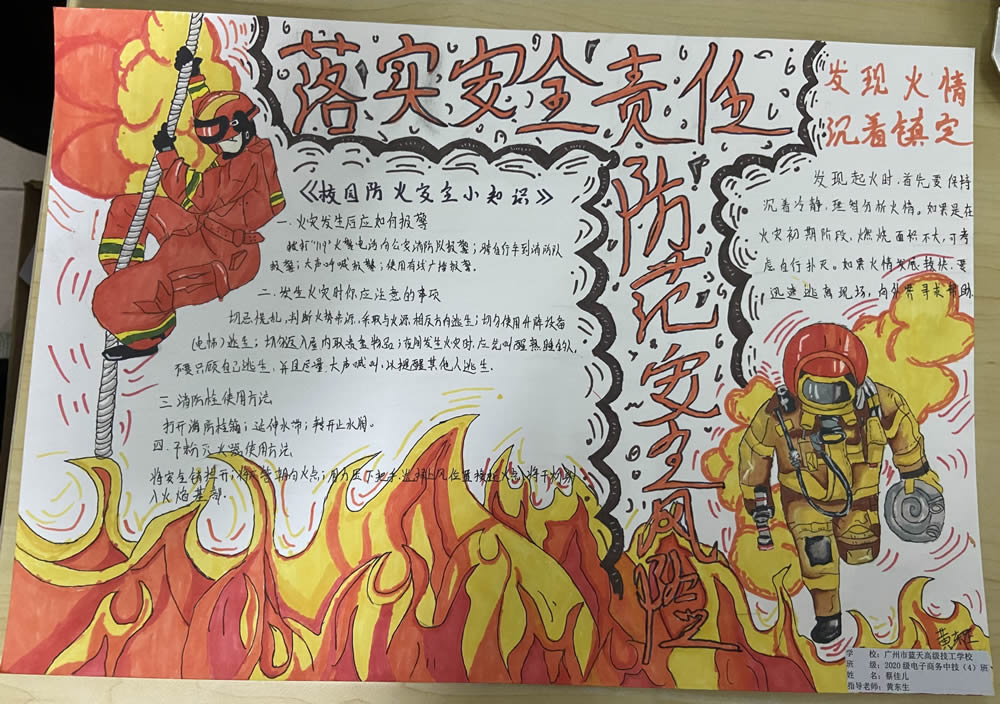 落实安全责任
防范安全风险
《校园防火安全小知识》
一、火灾发生后应如何报警
拨打“119”火警电话向公安消防队报警；骑自行车到消防队
报警；大声呼喊报警；使用有线广播报警。
二、发生火灾时你应注意的事项
切忌慌乱，判断火势来源，采取与火源相反方向逃生；切勿使用升降设备
(电梯)逃生；切勿返入屋内取贵重物品；夜间发生火灾时，应先叫醒熟睡的人，
不要只顾自己逃生，并且尽量大声喊叫，以提醒其他人逃生。
三、消防栓使用方法
打开消防栓箱；延伸水带；转开止水阀。
四、干粉灭火器使用方法
将安全销拉开；将皮管朝向火点；用力压下把手，选择上风位置接近火点，将干粉射
入火焰基部。
发现火情
沉着镇定
发现起火时，首先要保持
沉着冷静，理智分析火情。如果是在
火灾初期阶段，燃烧面积不大，可考
虑自行扑灭。如果火情发展较快，要
迅速逃离现场，向外界寻求帮助。
黄东生
学 校：广州市蓝天高级技工学校
班 级：2020级电子商务中技（4）班
姓 名：蔡佳儿
指导老师：黄东生